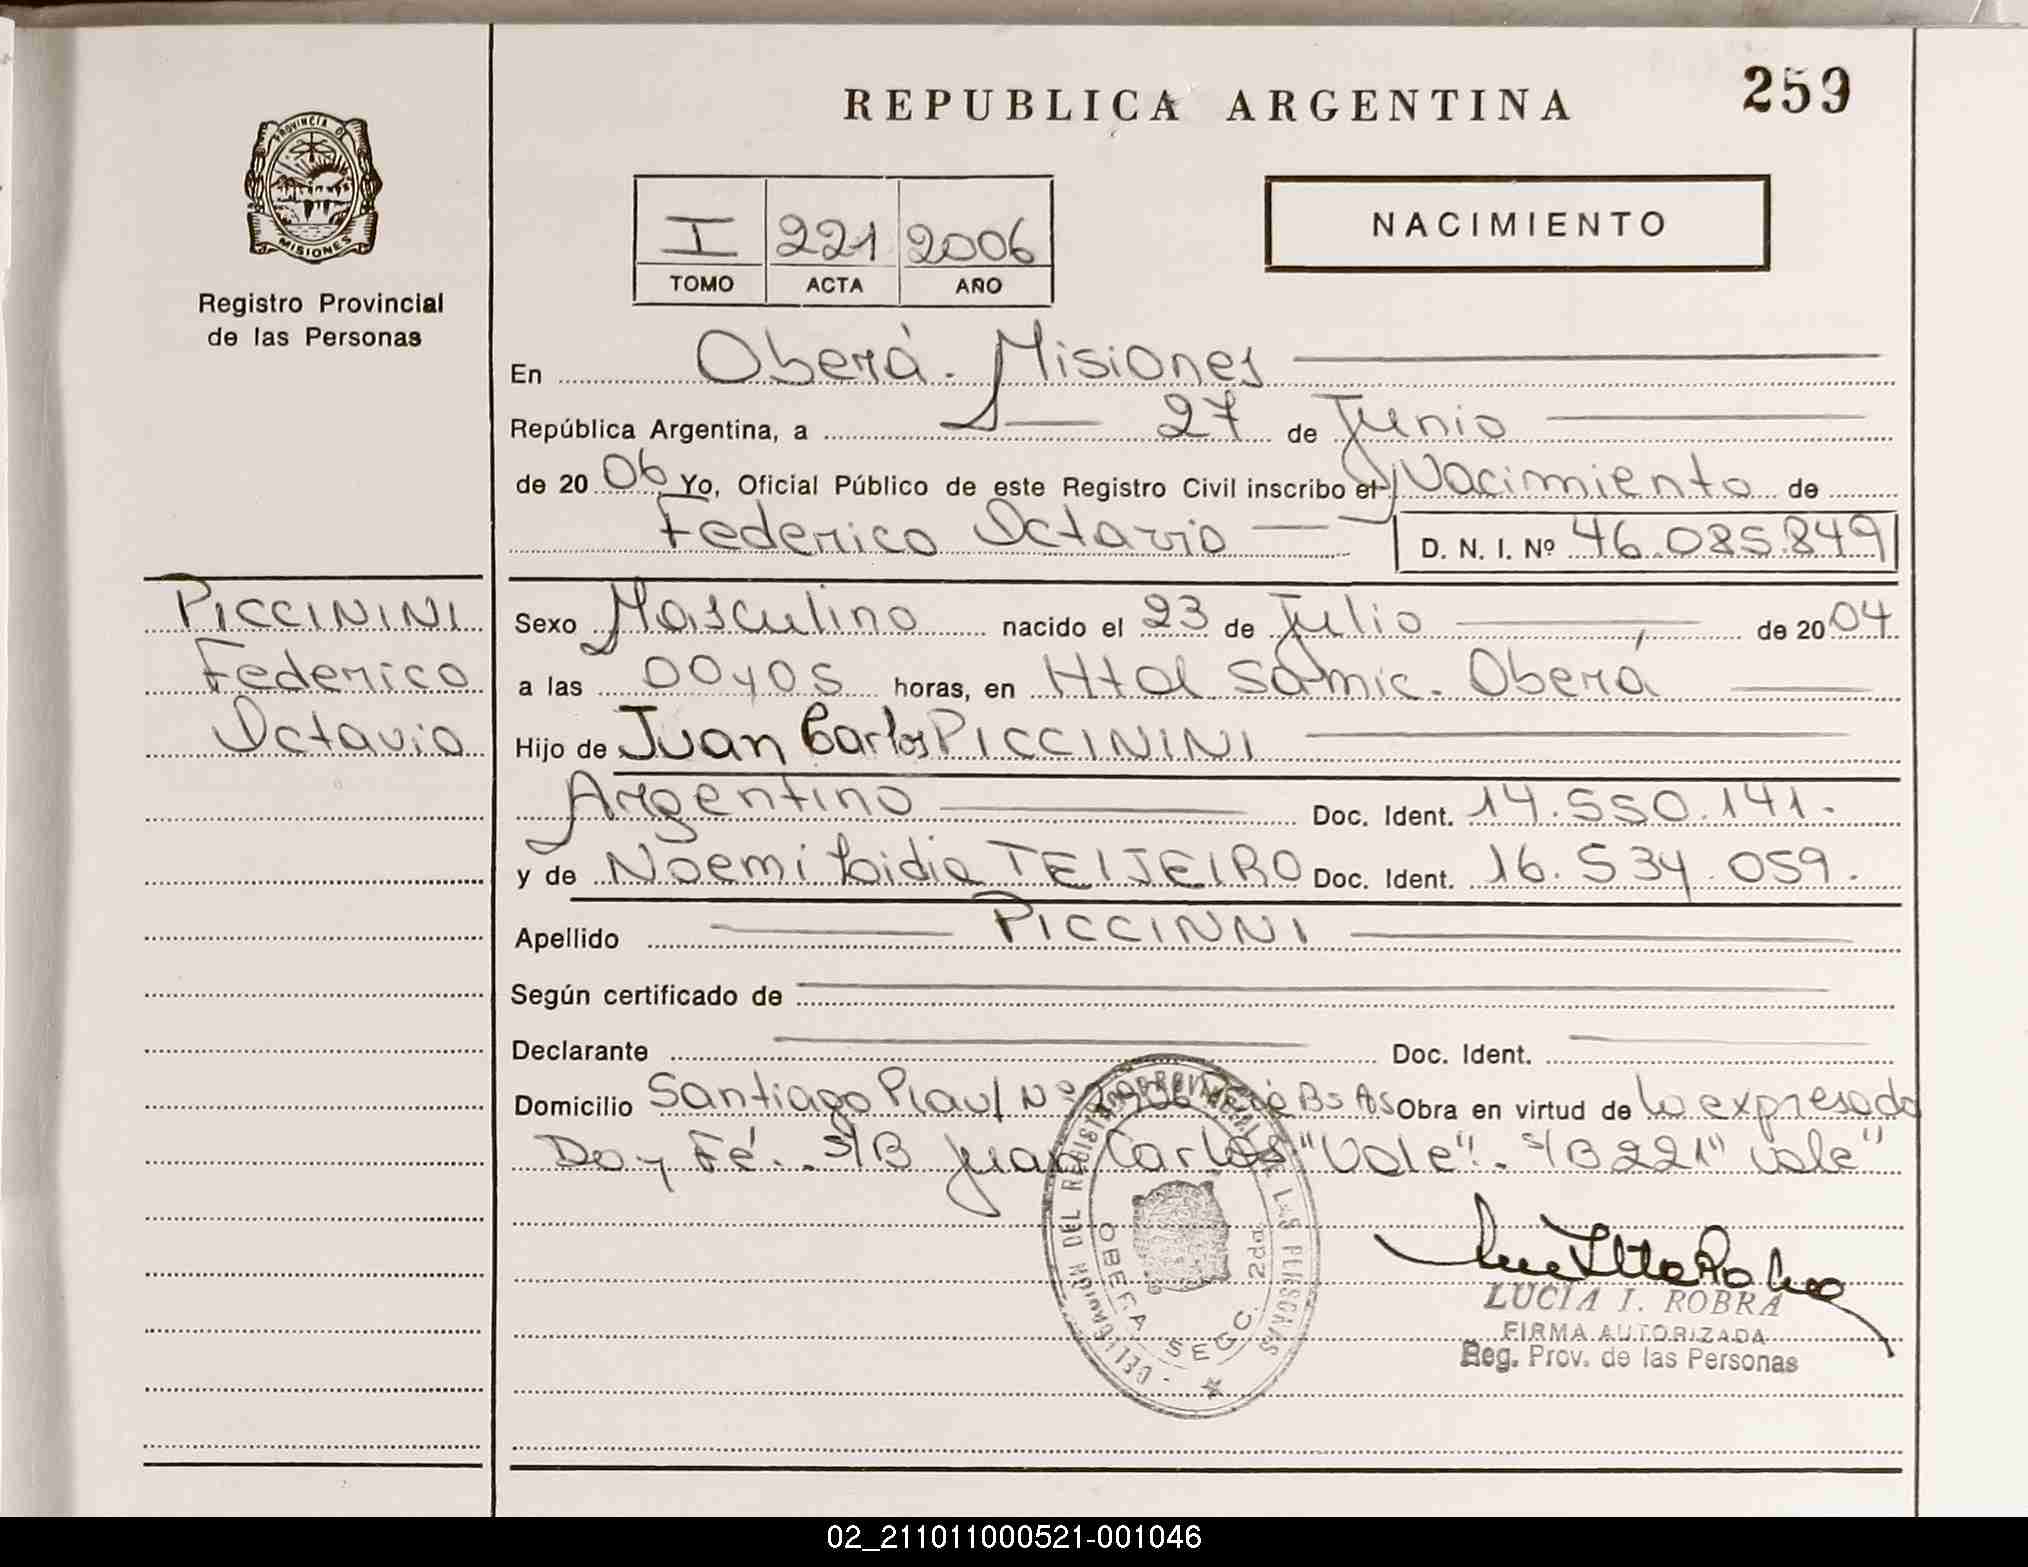 REPUBLICA ARGENTINA
259
PROVINCIA DE
MISIONES
Registro Provincial
de las Personas
I 221 2006
TOMO ACTA AÑO
NACIMIENTO
En Oberá. Misiones
República Argentina, a 27 de Junio
de 2006 Yo, Oficial Público de este Registro Civil inscribo el Nacimiento de
Federico Octavio D. N. I. Nº 46.085.849
PICCININI
Federico
Octavio
Sexo Masculino nacido el 23 de Julio de 2004
a las 00y05 horas, en Htal Samic. Oberá
Hijo de Juan Carlos PICCININI
Argentino Doc. Ident. 14.550.141.
y de Noemi Lidia TEIJEIRO Doc. Ident. 16.534.059.
Apellido PICCINNI
Según certificado de
Declarante Doc. Ident.
Domicilio Santiago Nº Bs As Obra en virtud de lo expresado
Doy Fé. S/B Juan Carlos "Vale". S/B 221 "vale"
DELEGACION DEL REGISTRO PROVINCIAL DE LAS PERSONAS
OBERA SECC. 2da.
LUCIA I. ROBRA
FIRMA AUTORIZADA
Reg. Prov. de las Personas
02_211011000521-001046